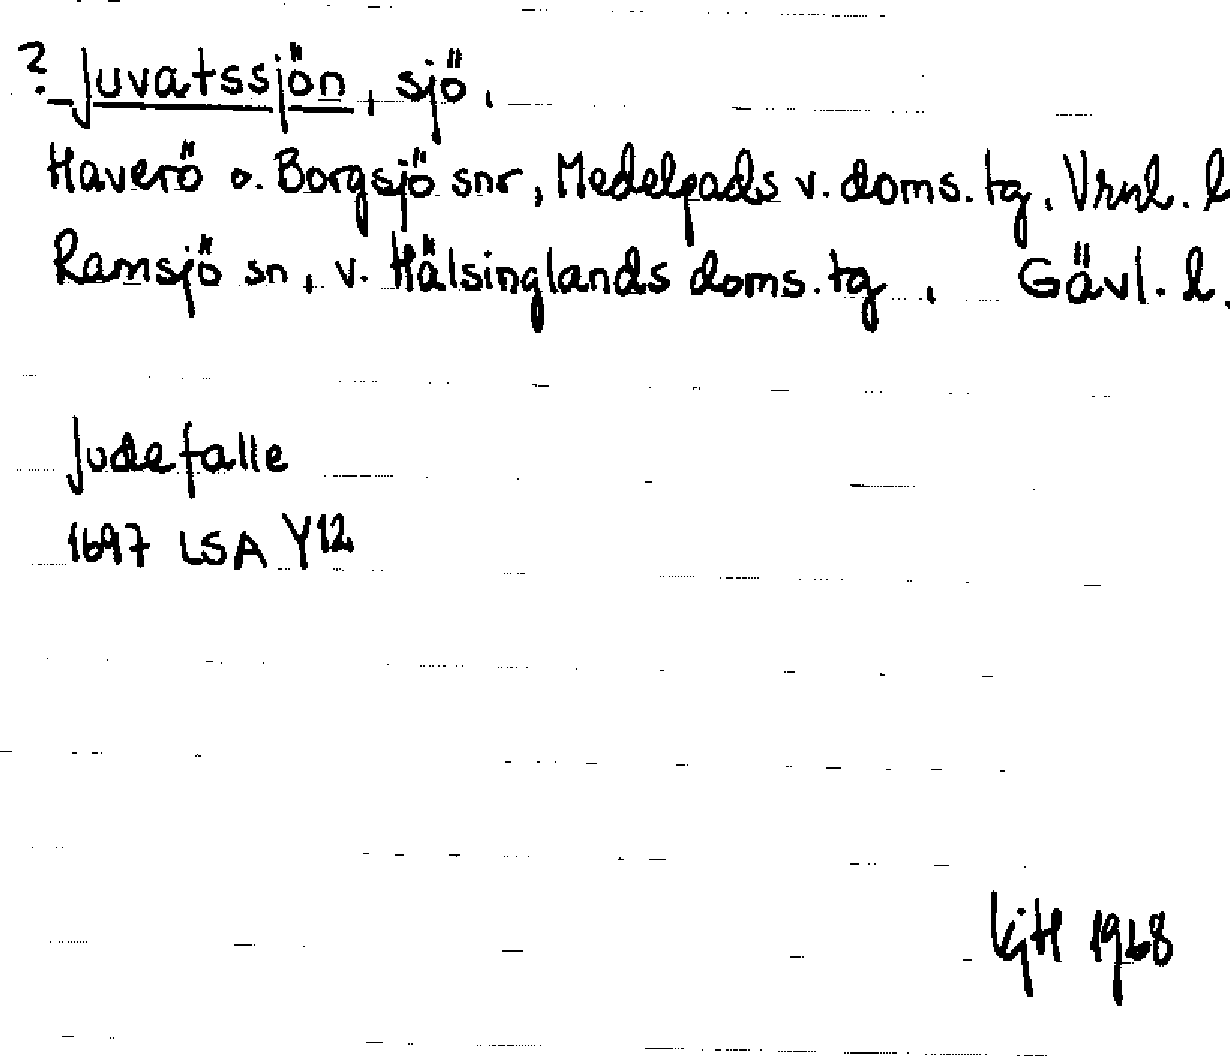 ? Juvatssjön, sjö,
Haverö o. Borgsjö snr, Medelpads v. doms. tg, Vrnl. l
Ramsjö sn, v. Hälsinglands doms. tg, Gävl. l.
Judefalle
1697 LSA Y12
KjH 1968